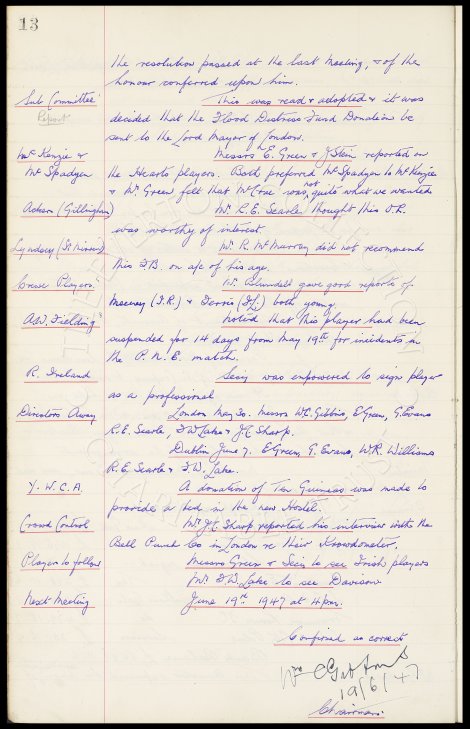 13
the resolution passed at the last Meeting, & of the
honour conferred upon him.
Sub Committee
Report
This was read & adopted & it was
decided that the Flood Distress Fund Donation be
sent to the Lord Mayor of London.
McKenzie &
McSpadyen
Messrs E. Green & J. Stein reported on
the Hearts players. Both preferred McSpadyen to McKenzie
& Mr Green felt that McCrae was not quite what we wanted
Acheson (Gillingham)
Mr. R. E. Searle thought this O.R.
was worthy of interest.
Lyndsey (St Mirren)
Mr. R. McMurray did not recommend
this F.B. on a/c of his age.
Crewe Players.
Mr. Blundell gave good reports of
(I.R.) & (I.L.) both young
A.W. Fielding
Noted that this player had been
suspended for 14 days from May 19th for incidents in
the P.N.E. match.
R. Ireland
Secy was empowered to sign player
as a professional
Directors Away
London May 30. Messrs W.C. Gibbins, E. Green, G. Evans
R.E. Searle, F.W. Lake & J.C. Sharp.
Dublin June 7. E. Green, G. Evans, W.R. Williams
R.E. Searle & F.W. Lake.
Y.W.C.A.
A donation of Ten Guineas was made to
provide a bed in the new Hostel.
Crowd Control
Mr J.C. Sharp reported his interview with the
Bell Punch Co in London re their Krowdometer.
Players to follow
Messrs Green & Secy to see Irish players
Mr. F.W. Lake to see Davison
Next Meeting
June 19th 1947 at 4 p.m.
Confirmed as correct
Wm C Gibbins
19/6/47
Chairman.